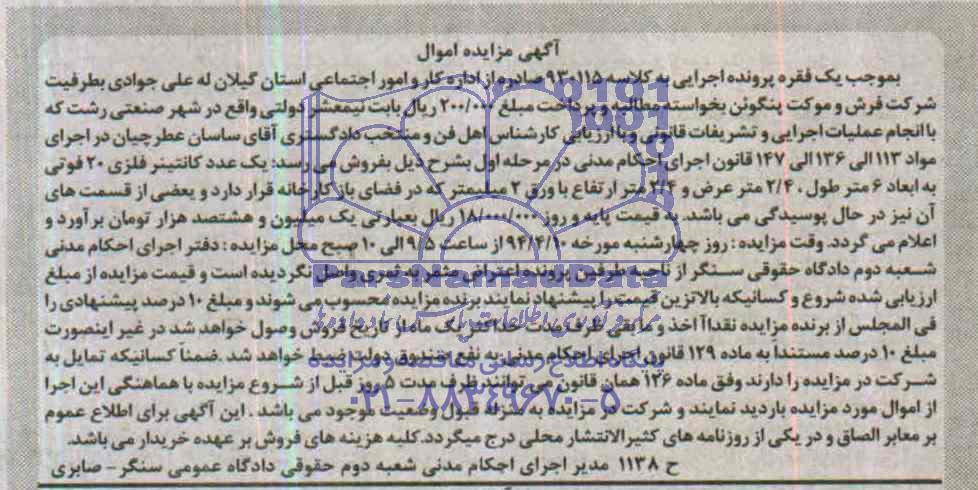 آگهی مزایده اموال
بموجب یک فقره پرونده اجرایی به کلاسه ۹۳۰۱۱۵ صادره از اداره کار و امور اجتماعی استان گیلان له علی جوادی بطرفیت
شرکت فرش و موکت پنگوئن بخواسته مطالبه و پرداخت مبلغ ۲۰۰/۰۰۰ ریال بابت نیمعشر دولتی واقع در شهر صنعتی رشت که
با انجام عملیات اجرایی و تشریفات قانونی و با ارزیابی کارشناس اهل فن و منتخب دادگستری آقای ساسان عطرچیان در اجرای
مواد ۱۱۳ الی ۱۳۶ الی ۱۴۷ قانون اجرای احکام مدنی در مرحله اول بشرح ذیل بفروش می رسد: یک عدد کانتینر فلزی ۲۰ فوتی
به ابعاد ۶ متر طول ، ۲/۴ متر عرض و ۲/۴ متر ارتفاع با ورق ۲ میلیمتر که در فضای باز کارخانه قرار دارد و بعضی از قسمت های
آن نیز در حال پوسیدگی می باشد. به قیمت پایه و روز ۱۸/۰۰۰/۰۰۰ ریال بعبارتی یک میلیون و هشتصد هزار تومان برآورد و
اعلام می گردد. وقت مزایده : روز چهارشنبه مورخه ۹۴/۴/۱۰ از ساعت ۹/۵ الی ۱۰ صبح محل مزایده : دفتر اجرای احکام مدنی
شعبه دوم دادگاه حقوقی سنگر از ناحیه طرفین پرونده اعتراض مثمر به ثمری واصل نگردیده است و قیمت مزایده از مبلغ
ارزیابی شده شروع و کسانیکه بالاترین قیمت را پیشنهاد نمایند برنده مزایده محسوب می شوند و مبلغ ۱۰ درصد پیشنهادی را
فی المجلس از برنده مزایده نقداً اخذ و مابقی ظرف مدت حداکثر یک ماه از تاریخ فروش وصول خواهد شد در غیر اینصورت
مبلغ ۱۰ درصد مستنداً به ماده ۱۲۹ قانون اجرای احکام مدنی به نفع صندوق دولت ضبط خواهد شد .ضمناً کسانیکه تمایل به
شرکت در مزایده را دارند وفق ماده ۱۲۶ همان قانون می توانند ظرف مدت ۵ روز قبل از شروع مزایده با هماهنگی این اجرا
از اموال مورد مزایده بازدید نمایند و شرکت در مزایده به منزله قبول وضعیت موجود می باشد . این آگهی برای اطلاع عموم
بر معابر الصاق و در یکی از روزنامه های کثیرالانتشار محلی درج میگردد.کلیه هزینه های فروش بر عهده خریدار می باشد.
ح ۱۱۳۸ مدیر اجرای احکام مدنی شعبه دوم حقوقی دادگاه عمومی سنگر - صابری
ParsNamadData
۰۲۱-۸۸۳۴۹۶۷۰-۵